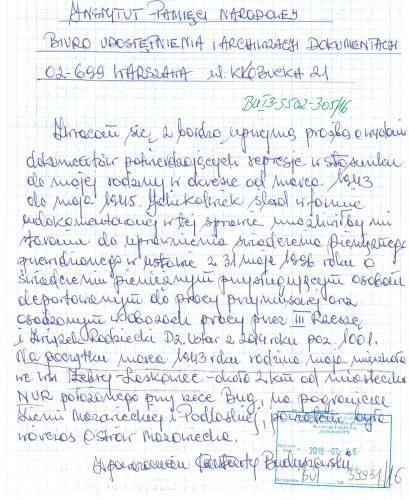 INSTYTUT PAMIĘCI NARODOWEJ
BIURO UDOSTĘPNIENIA I ARCHIWIZACJI DOKUMENTACJI
02-699 WARSZAWA ul. KŁOBUCKA 21
BUIB-5502-305/16
Zwracam się z bardzo uprzejmą prośbą o wydanie
dokumentów potwierdzających represje w stosunku
do mojej rodziny w okresie od marca 1943
do maja 1945. Jakikolwiek ślad w formie
udokumentowanej w tej sprawie umożliwiłby mi
starania do uprawnienia świadczenia pieniężnego
przewidzianego w ustawie z 31 maja 1996 roku o
świadczeniu pieniężnym przysługującym osobom
deportowanym do pracy przymusowej oraz
osadzonym w obozach pracy przez III Rzeszę
i Związek Radziecki Dz. Ustaw z 2014 roku poz. 1001.
Na początku marca 1943 roku rodzina moja mieszkała
we wsi Zebry-Laskowiec - około 2 km od miasteczka
NUR położonego przy rzece Bug, na pograniczu
Ziemi Mazowieckiej i Podlaskiej, powiatem było
wówczas Ostrów Mazowiecka.
Z poważaniem
2016 -07-